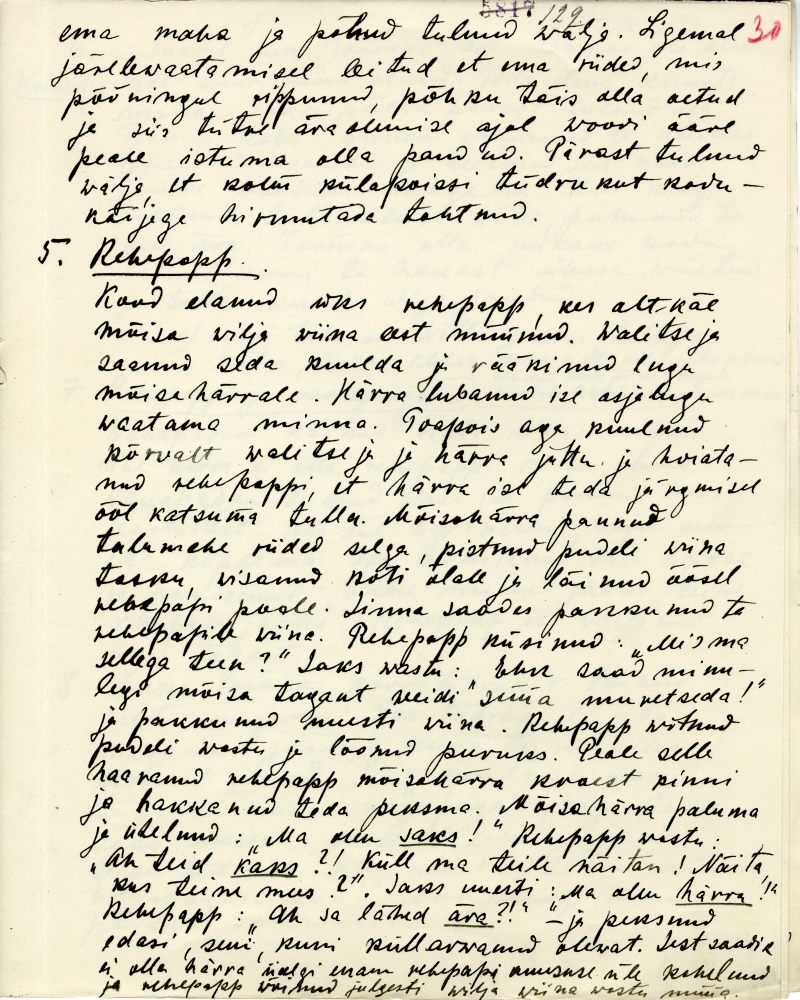 5817 129
ema maha ja põhud tulnud wälja. Ligemal 30
järelewaatamisel leitud et ema riided, mis
pööningul rippunud, põhku täis olla aetud
ja siis tütre äraolemise ajal woodi ääre
peale istuma olla pandud. Pärast tulnud
wälja, et kolm külapoissi tüdrukut kodu-
käijega hirmutada tahtnud.
5. Rehepapp.
Kord elanud üks rehepapp, kes alt käe
mõisa wilja wiina eest müünud. Walitseja
saanud seda kuulda ja rääkinud lugu
mõisahärrale. Härra lubanud ise asjalugu
waatama minna. Toapois aga kuulnud
kõrvalt walitseja ja härra juttu ja hoiata-
nud rehepappi, et härra ise teda järgmisel
ööl katsuma tulla. Mõisahärra pannud
talumehe riided selga, pistnud pudeli wiina
tasku, wisanud koti õlale ja läinud öösel
rehepapi poole. Sinna saades pakkunud ta
rehepapile wiina. Rehepapp küsinud: „Mis ma
sellega teen?" Saks wastu: Ehk saad minu-
legi mõisa tagant weidi "süüa muretseda!"
ja pakkunud uuesti wiina. Rehepapp wõtnud
pudeli wastu ja löönud puruks. Peale selle
haaranud rehepapp mõisahärra kraest kinni
ja hakkanud teda peksma. Mõisahärra paluma
ja ütelnud: „Ma olen saks!" Rehepapp wastu:
„Ah teid kaks?! Küll ma teile näitan! Näita,
kus teine mees?". Saks uuesti: „Ma olen härra!"
Rehepapp: „Ah sa lähed ära?!" – ja peksnud
edasi, seni, kuni küllarwanud olewat. Sest saadik
ei olla härra iialgi enam rehepapi aususe üle kahelnud
ja rehepapp wõinud julgesti wilja wiina wastu müüa